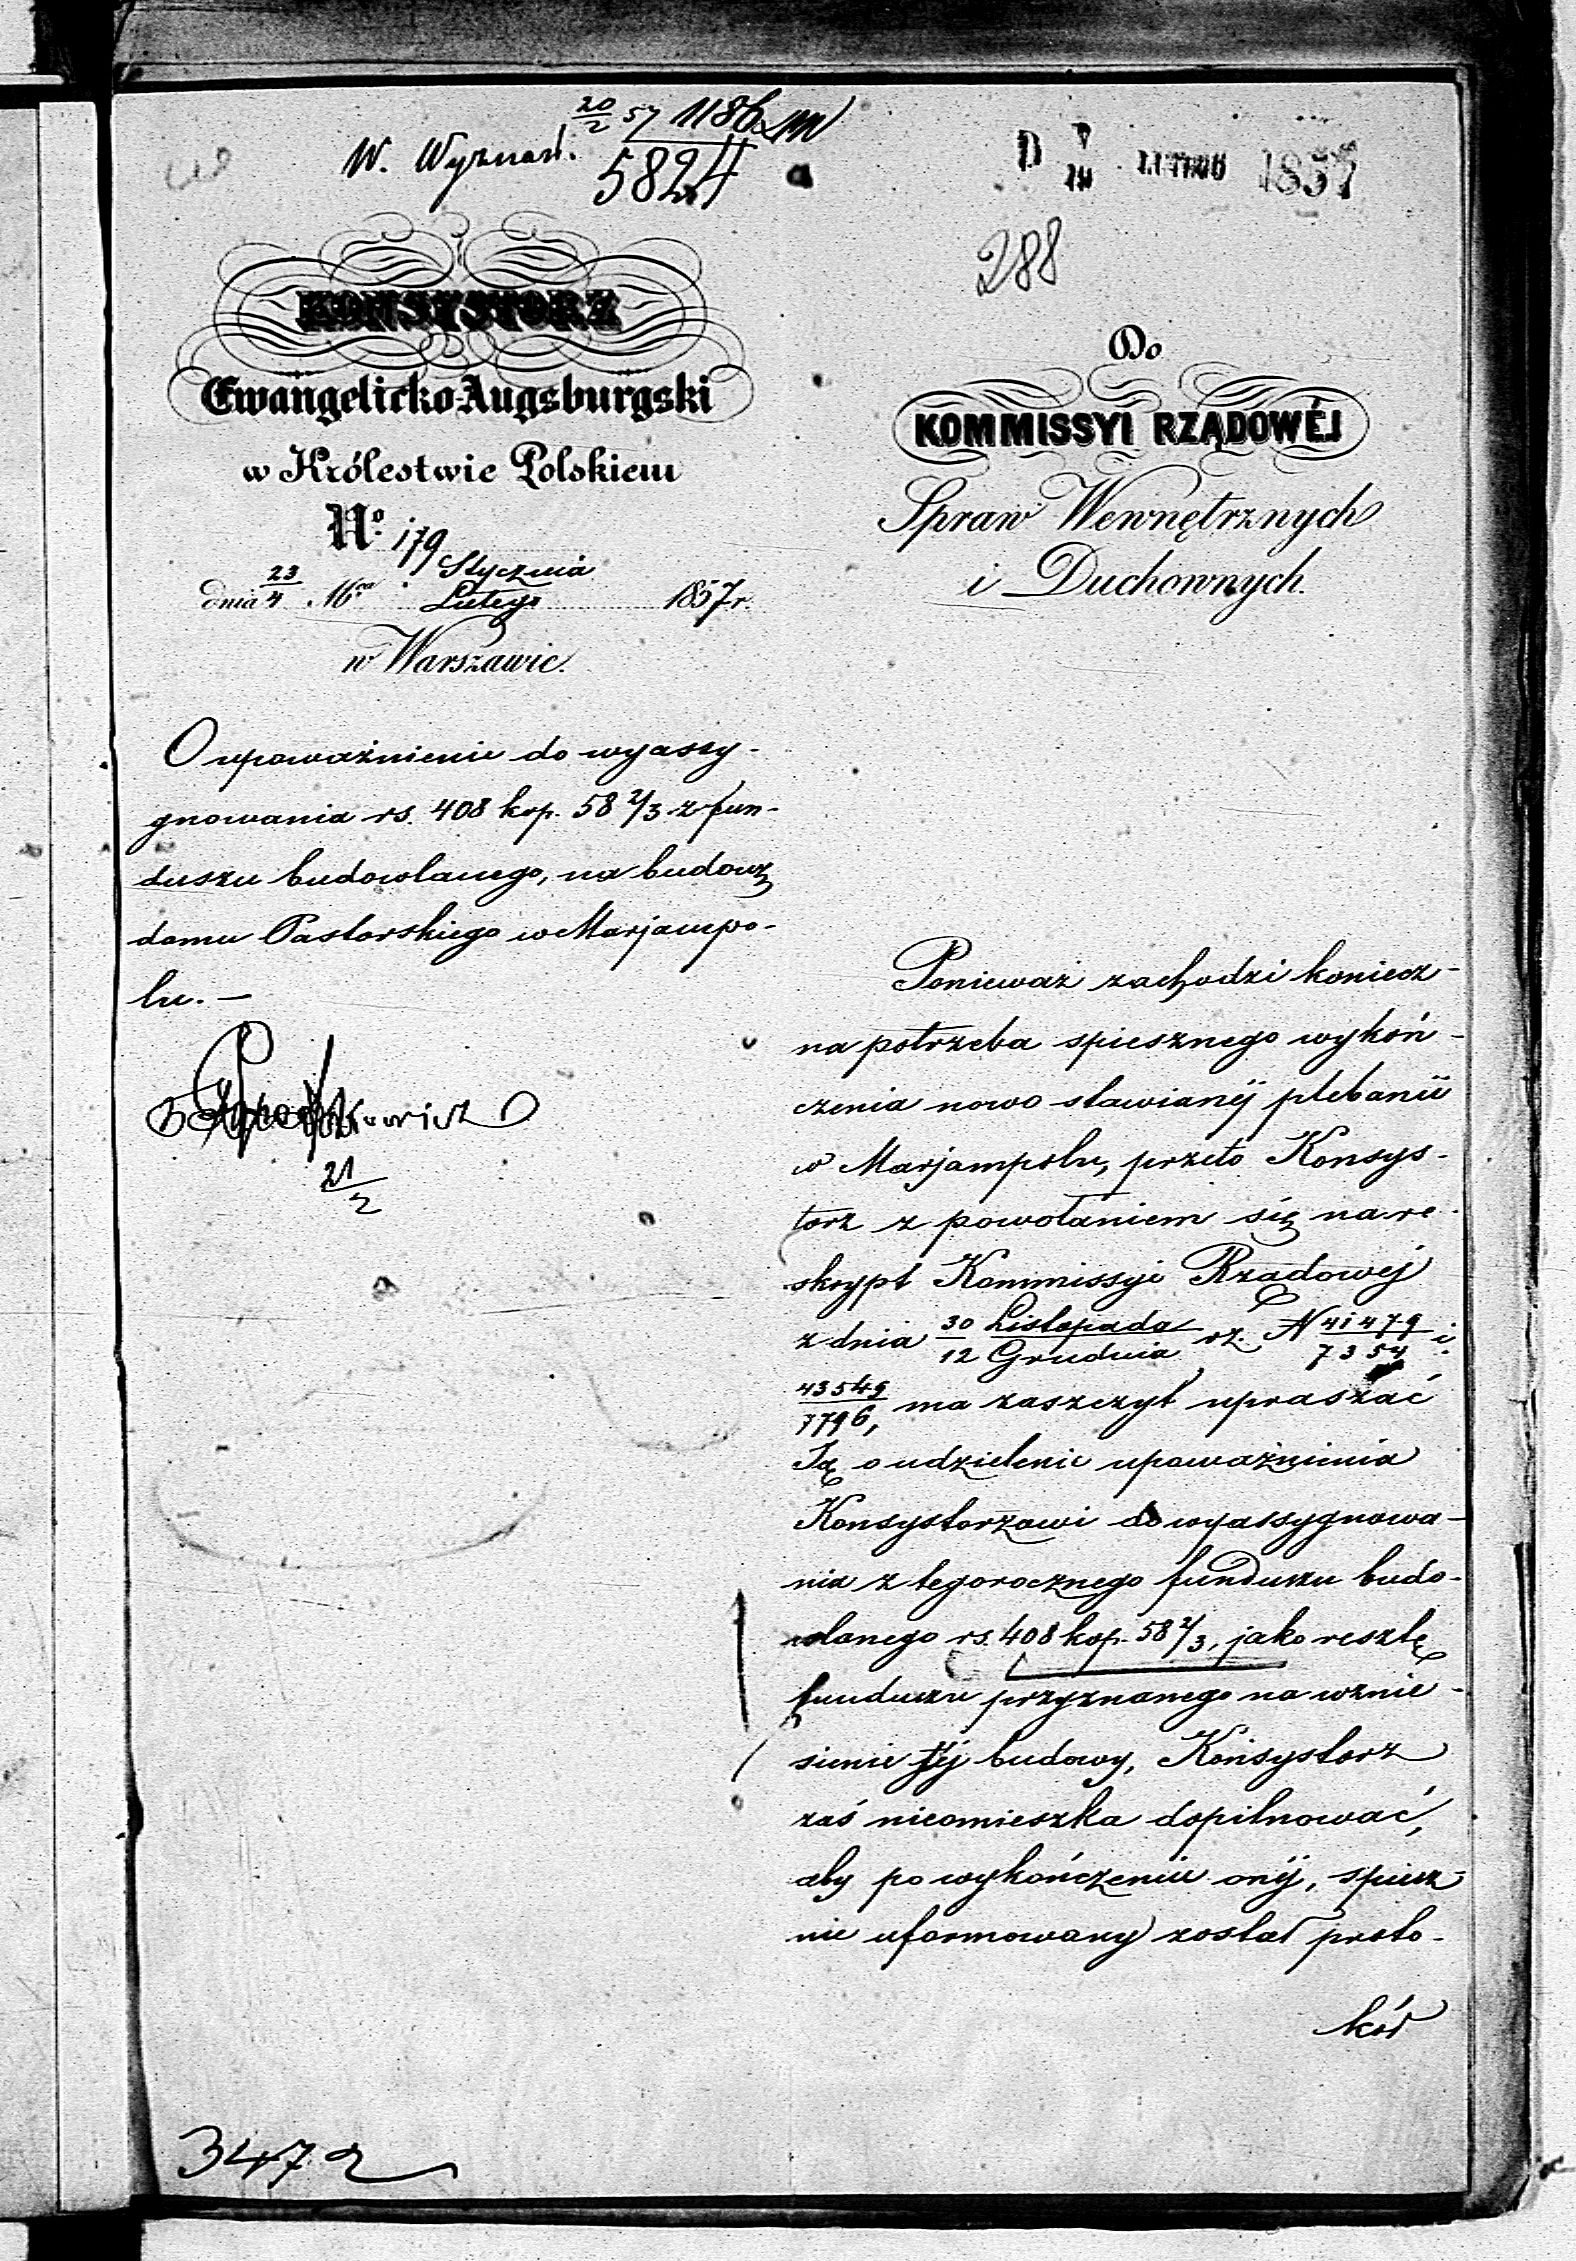 20/2 57 1186
W. Wyznań. 5824
LUTEGO 1857
288
KONSYSTORZ
Ewangelicko-Augsburgski
w Królestwie Polskiem
No. 179
dnia 23/4 Mca Stycznia/Lutego 1857 r.
w Warszawie.
O upoważnienie do wyassy-
gnowania rs. 408 kop. 58 2/3 z fun-
duszu budowlanego, na budowę
domu Pastorskiego w Marjampo-
lu. —
21/2
Do
KOMMISSYI RZĄDOWÉJ
Spraw Wewnętrznych
i Duchownych.
Ponieważ zachodzi koniecz-
na potrzeba spiesznego wykoń-
czenia nowo stawianéj plebanii
w Marjampolu, przeto Konsys-
torz z powołaniem się na re-
skrypt Kommissyi Rządowéj
z dnia 30 Listopada/12 Grudnia rz. N 41479/7354 i
43549/7796, ma zaszczyt upraszać
Ją o udzielenie upoważnienia
Konsystorzowi do wyassygnowa-
nia z tegorocznego funduszu budo-
wlanego rs. 408 kop. 58 2/3, jako resztę
funduszu przyznanego na wznie-
sienie téj budowy, Konsystorz
zaś nieomieszka dopilnować,
aby po wykończeniu onéj, spiesz-
nie uformowany został proto-
kół
3472